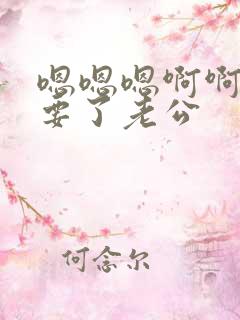 嗯嗯嗯啊啊
要了老公
何念尔